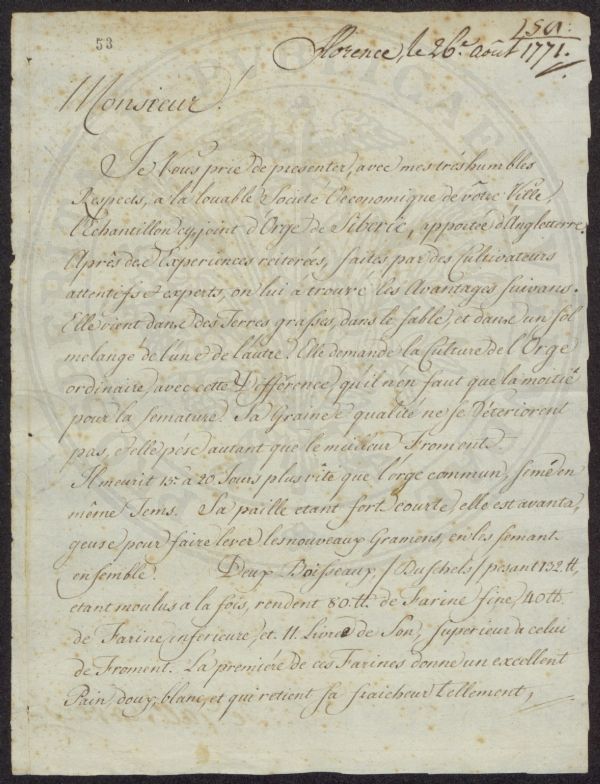 53
Florence, le 26.e août 1771.
Monsieur!
Je Vous prie de presenter, avec mes trés humbles
Respects, a la louable Societé Oeconomique de vôtre Ville,
l'Echantillon cy joint d'Orge de Siberie, apportée d'Angletterre.
Après des Experiences reiterées, faites par des Cultivateurs
attentifs & experts, on lui a trouvé les Avantages suivans.
Elle vient dans des Terres grasses, dans le sable, et dans un sol
melangé de l'une de l'autre. Elle demande la Culture de l'Orge
ordinaire, avec cette Difference, qu'il n'en faut que la moitié
pour la semature. Sa Graine & qualité ne se Déteriorent
pas, & elle pése autant que le meilleur Froment.
Il meurit 15 à 20 Jours plus vîte que l'orge commun, semé en
même Tems. Sa paille etant fort courte, elle est avanta,
geuse pour faire lever les nouveaux Gramens, en les semant
ensemble. Deux Boisseaux, /Buschels/ pesant 132 ℔,
etant moulus a la fois, rendent 80 ℔. de Farine fine, 40 ℔
de Farine inferieure, et 11 Livres de Son, superieur a celui
de Froment. La premiére de ces Farines donne un excellent
Pain, doux, blanc, et qui retient sa fraicheur tellement,